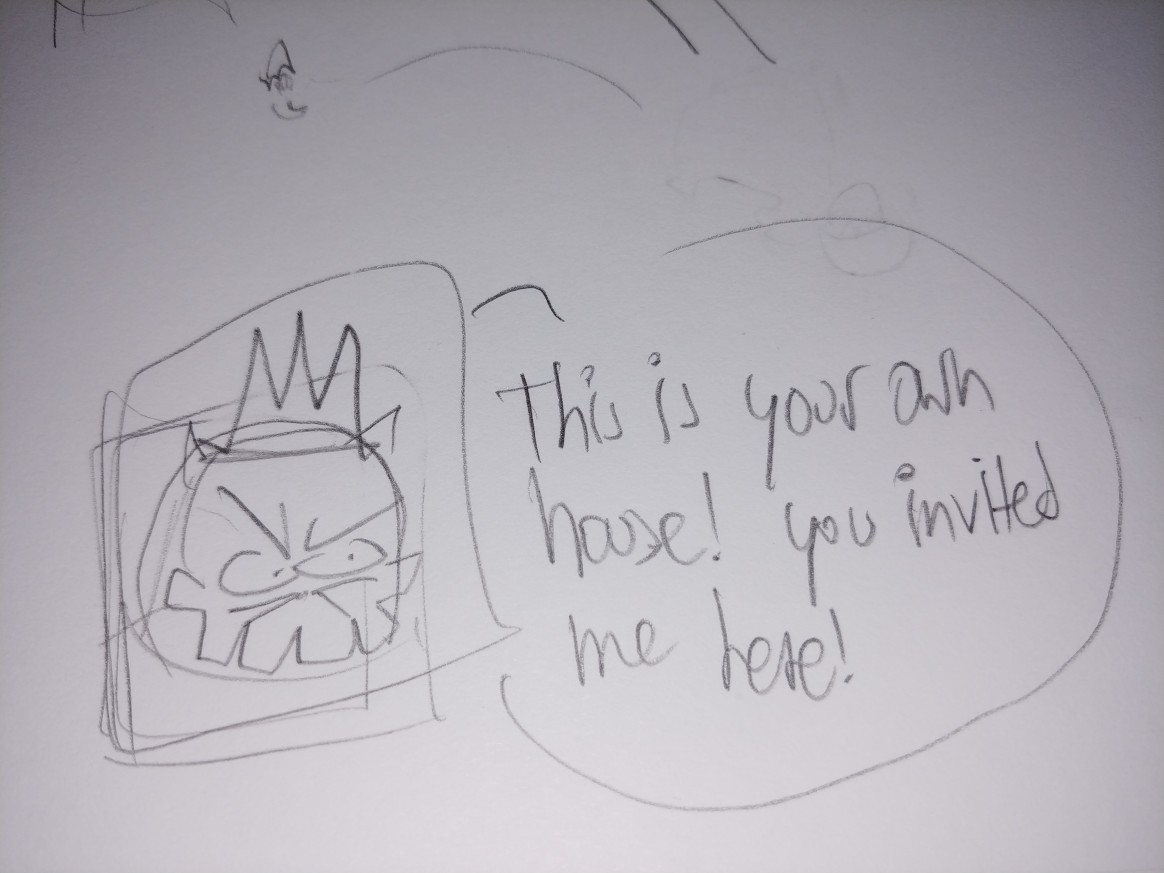 This is your own
house! you invited
me here!